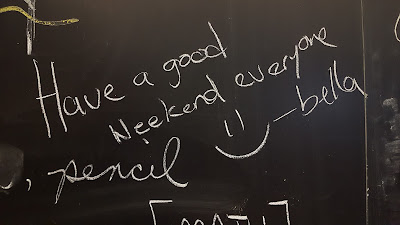 Have a good
Weekend everyone
:) -bella
, pencil
[MATH]